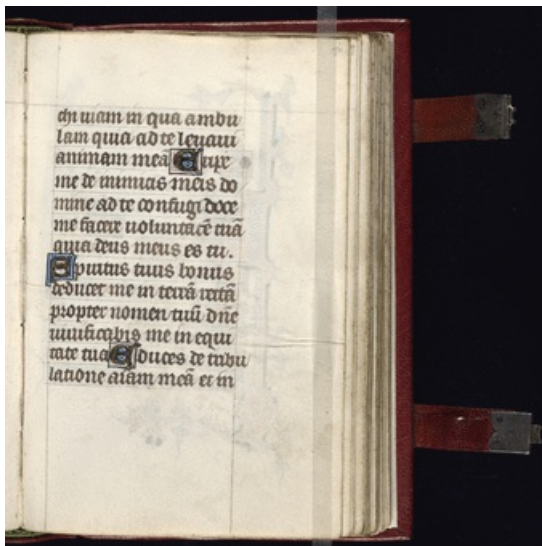 chi uiam in qua ambu
lam quia ad te leuaui
animam meā Eripe
me de inimicis meis do
mine ad te confugi doce
me facere uoluntatē tuā
quia deus meus es tu.
Spiritus tuus bonus
deducet me in terrā rectā
propter nomen tuū dn̄e
uiuificabis me in equi
tate tua Educes de tribu
latione aīam meā et in